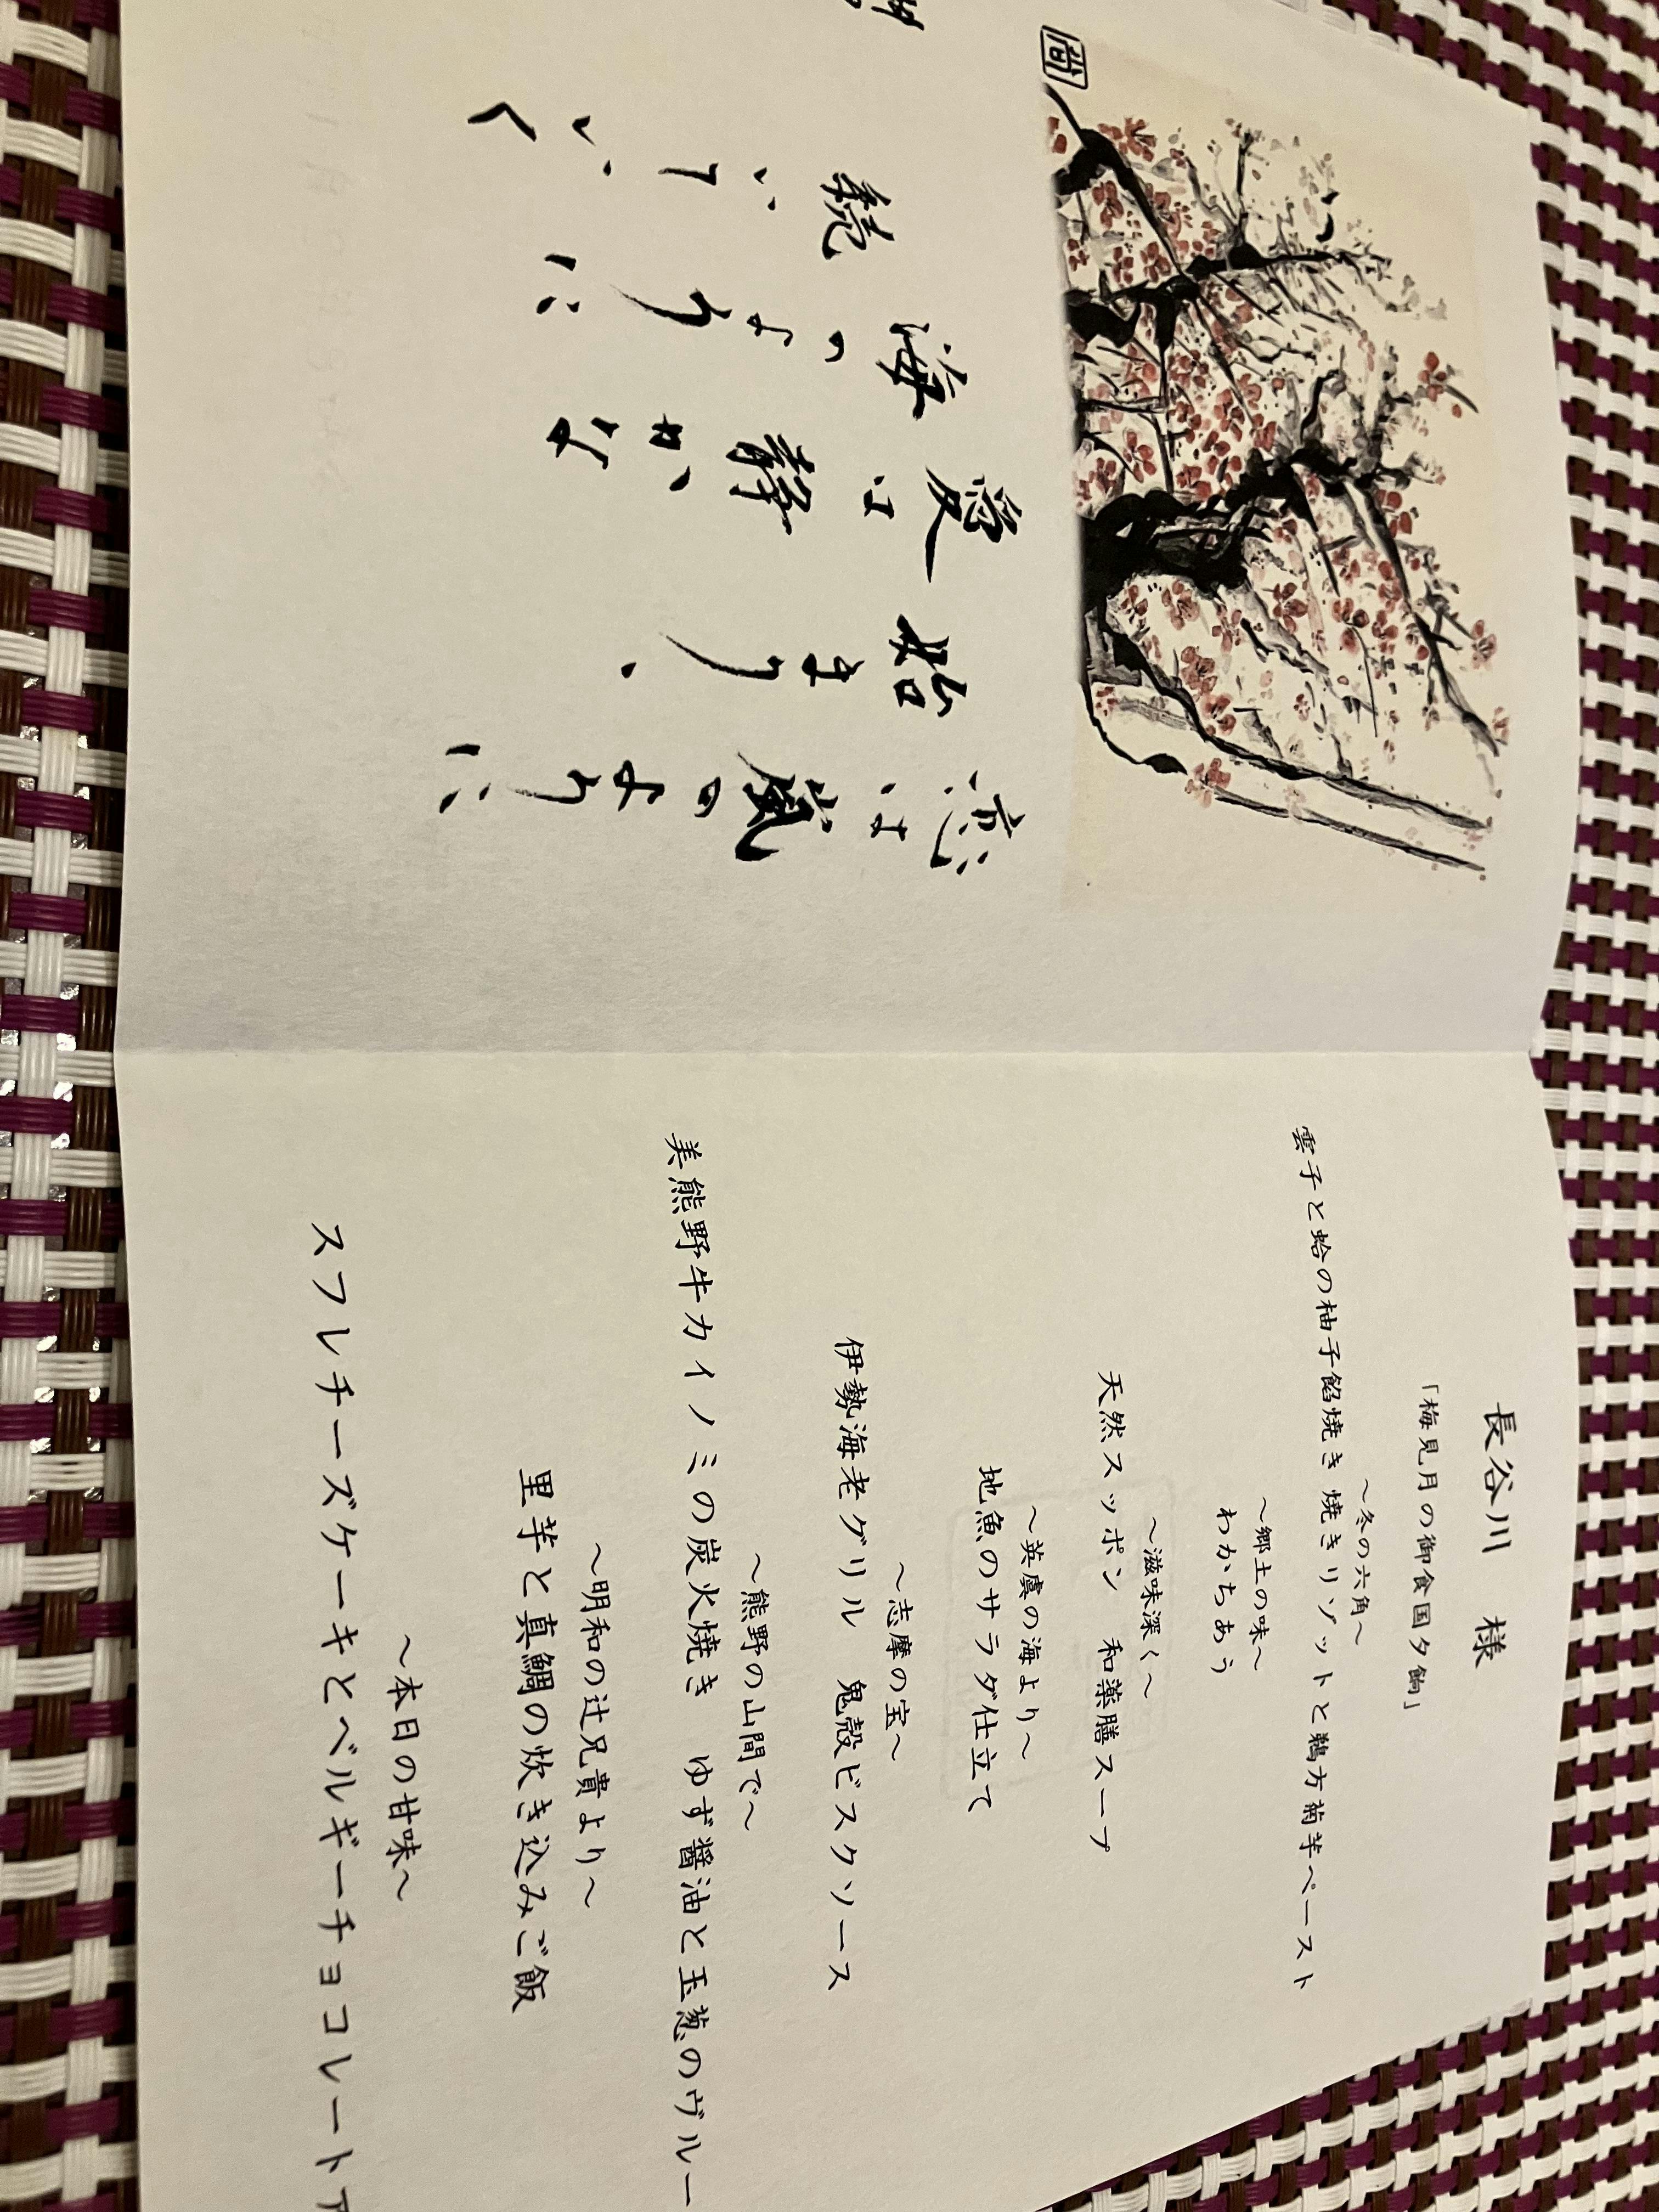 尚
恋は嵐のように
始まり、
愛は静かな
海のように
続いていく
長谷川　様
「梅見月の御食国夕餉」
～冬の六角～
雲子と蛤の柚子餡焼き 焼きリゾットと鵜方菊芋ペースト
～郷土の味～
わかちあう
～滋味深く～
天然スッポン　和薬膳スープ
～英虞の海より～
地魚のサラダ仕立て
～志摩の宝～
伊勢海老グリル　鬼殻ビスクソース
～熊野の山間で～
美熊野牛カイノミの炭火焼き　ゆず醤油と玉葱のヴルー
～明和の辻兄貴より～
里芋と真鯛の炊き込みご飯
～本日の甘味～
スフレチーズケーキとベルギーチョコレートア